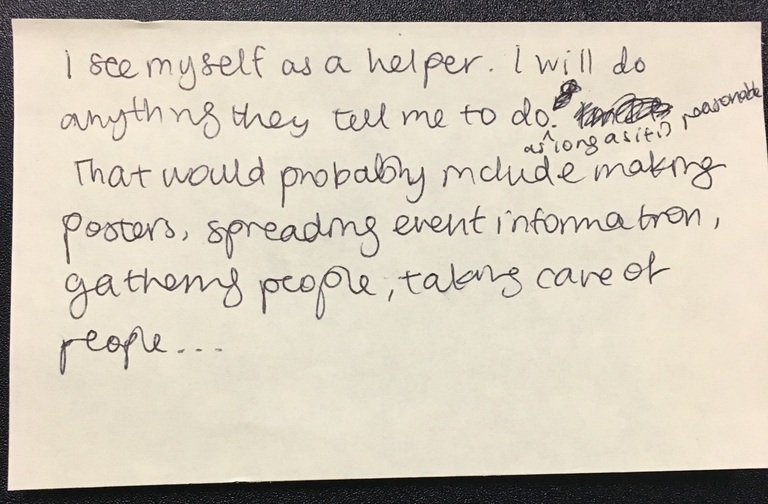 I see myself as a helper. I will do
anything they tell me to do.
as long as it is reasonable
That would probably include making
posters, spreading event information,
gathering people, taking care of
people...